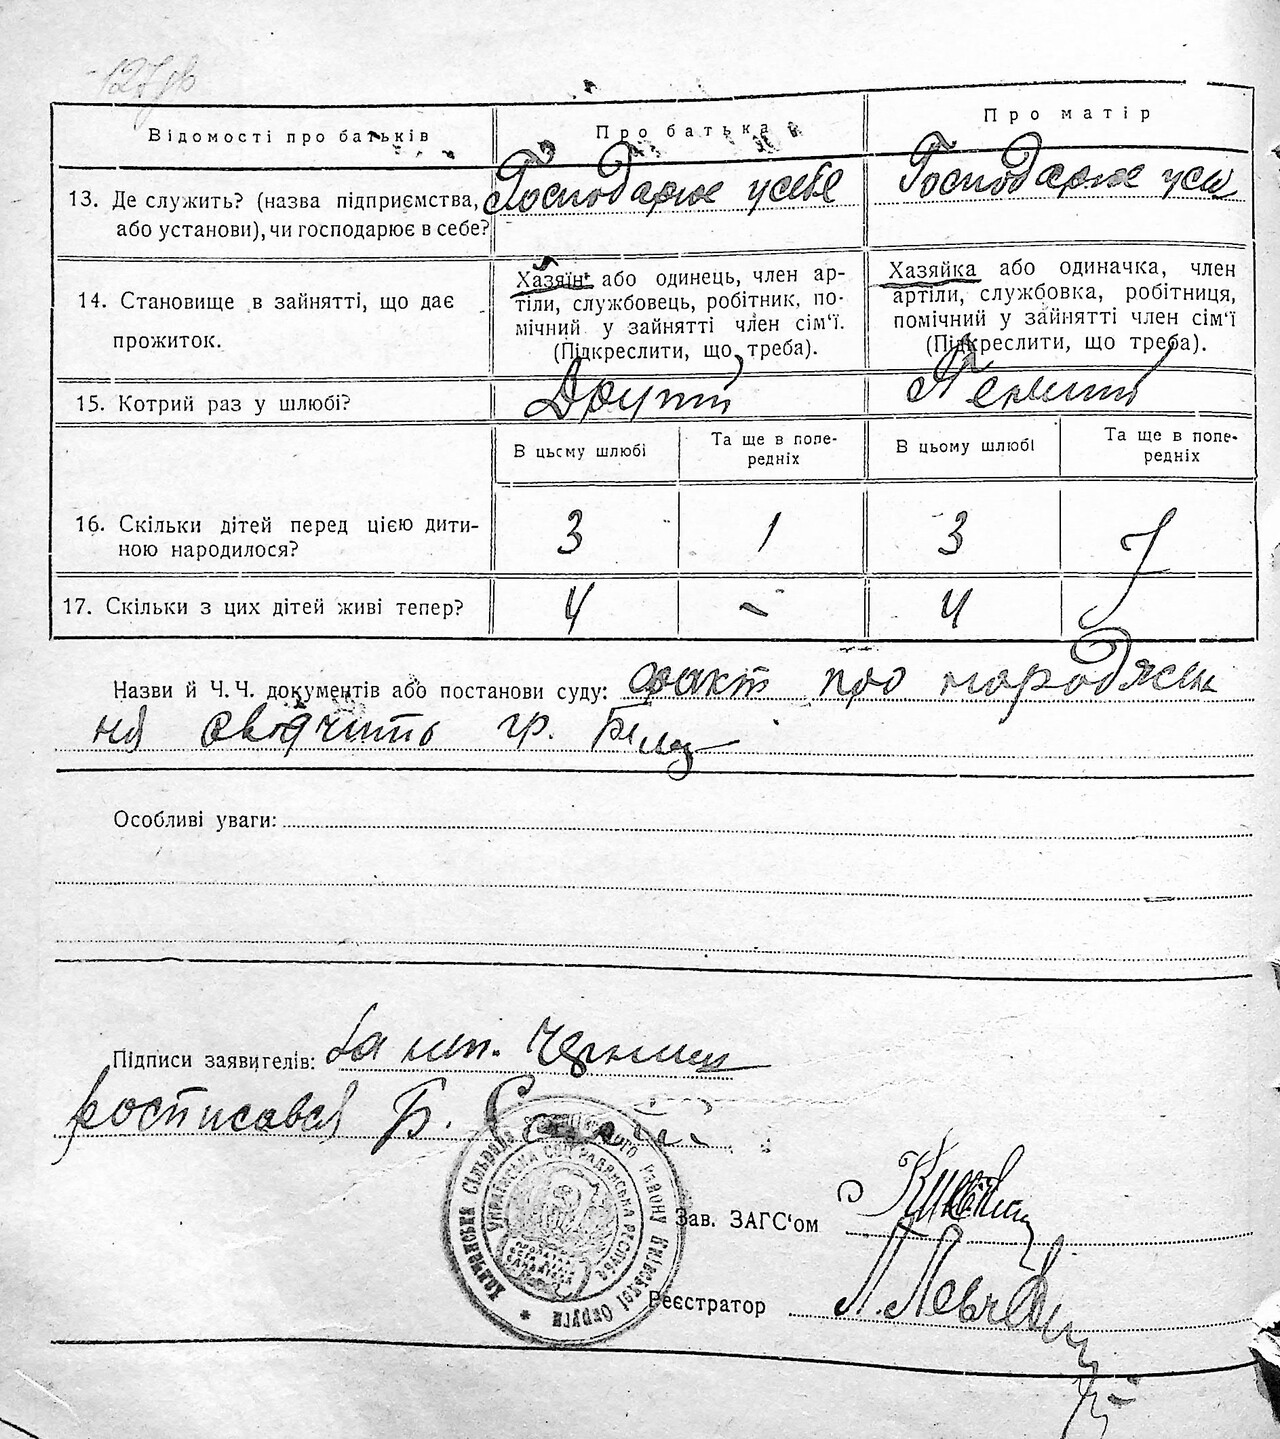 127 зв
Відомості про батьків
Про батька
Про матір
13. Де служить? (назва підприємства,
або установи), чи господарює в себе?
Господарює у себе
Господарює у се
14. Становище в зайнятті, що дає
прожиток.
Хазяїн або одинець, член ар-
тіли, службовець, робітник, по-
мічний у зайнятті член сім'ї.
(Підкреслити, що треба).
Хазяйка або одиначка, член
артіли, службовка, робітниця,
помічний у зайнятті член сім'ї
(Підкреслити, що треба).
15. Котрий раз у шлюбі?
Другий
Перший
В цьому шлюбі
Та ще в попе-
редніх
В цьому шлюбі
Та ще в попе-
редніх
16. Скільки дітей перед цією дити-
ною народилося?
3
1
3
17. Скільки з цих дітей живі тепер?
4
-
4
Назви й Ч. Ч. документів або постанови суду: факт про народжен
ня свідчить гр.
Особливі уваги:
Підписи заявителів: За неп.
росписався Б.
Українська Соц. Радянська Республіка
Сільрада
району Київської Округи
Зав. ЗАГС'ом
Реєстратор Л.